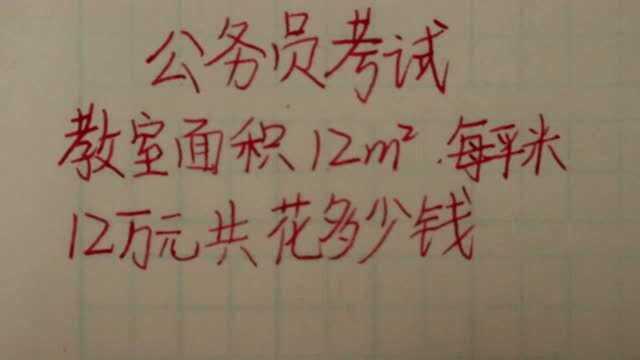 公务员考试
教室面积12m².每平米
12万元共花多少钱